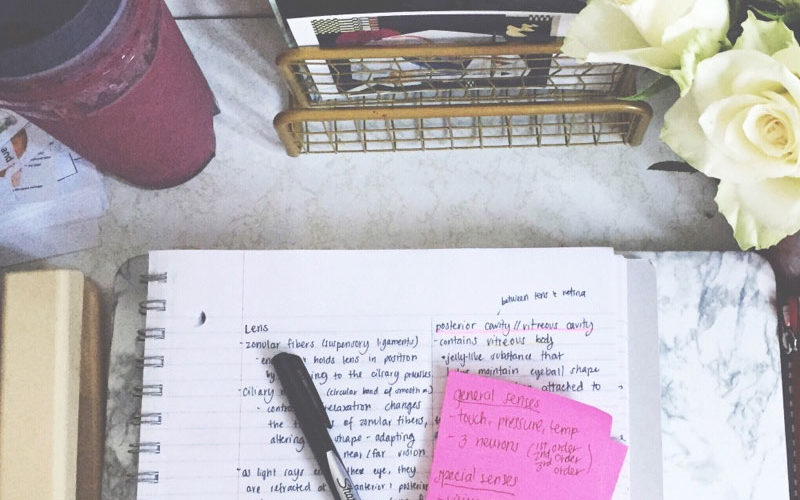 between lens & retina
Lens
-zonular fibers (suspensory ligaments)
- holds lens in position
by to the ciliary processes
Ciliary (circular band of smooth m
- relaxation changes
the of zonular fibers,
altering shape - adapting
near/far vision
as light rays the eye, they
are refracted @ anterior & posterior
posterior cavity//vitreous cavity
- contains vitreous body
jelly-like substance that
maintain eyeball shape
attached to
general senses
- touch, pressure, temp
- 3 neurons (1st order
2nd order
3rd order)
special senses
Sha
and